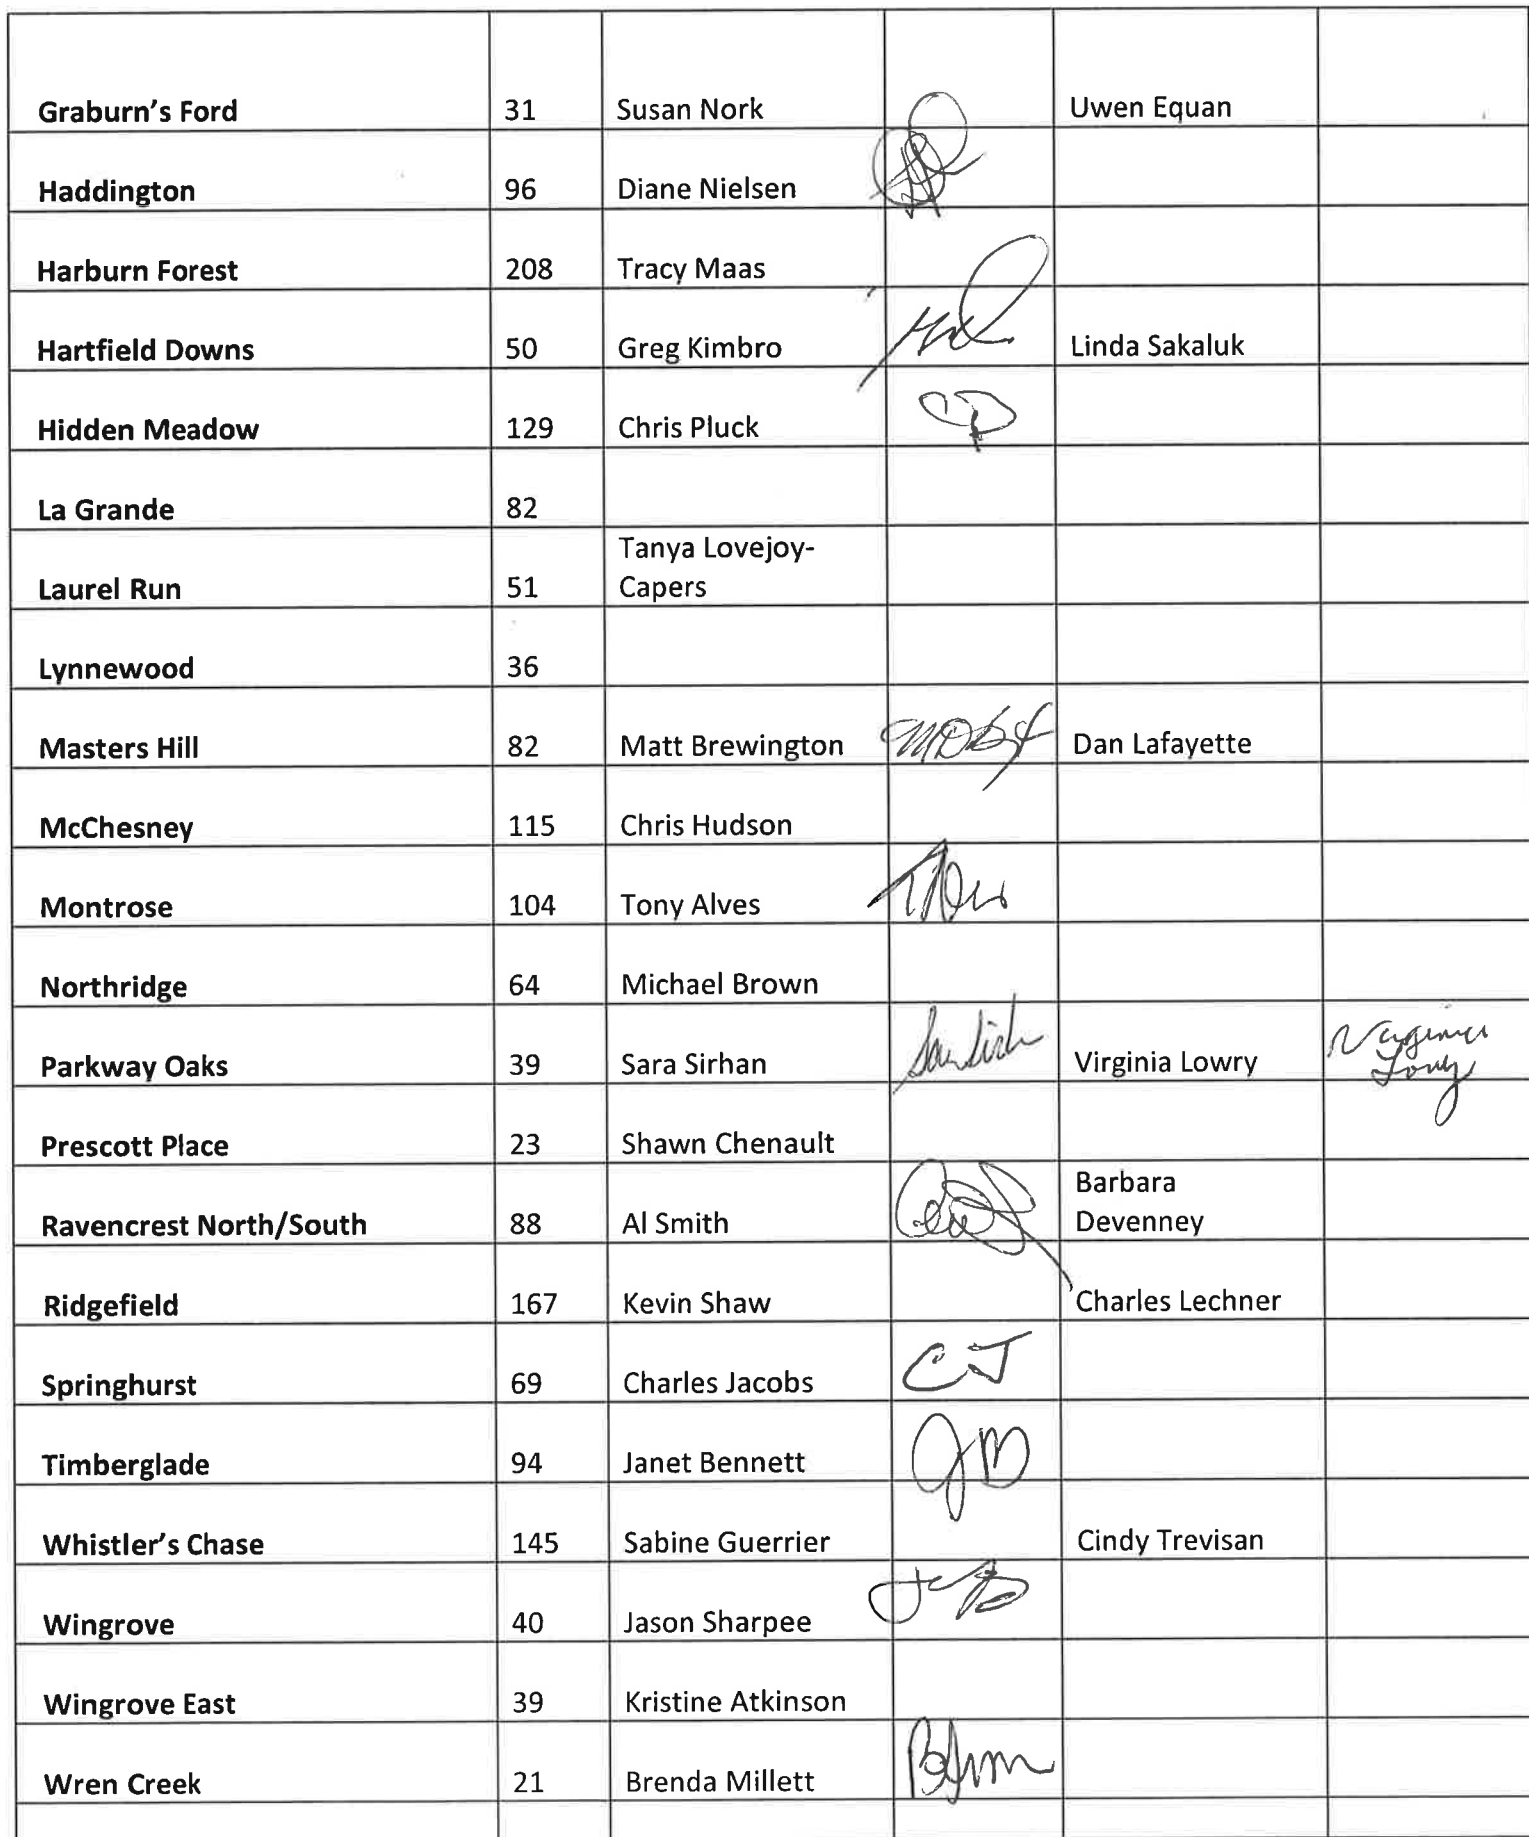 Graburn's Ford 31 Susan Nork Uwen Equan
Haddington 96 Diane Nielsen
Harburn Forest 208 Tracy Maas
Hartfield Downs 50 Greg Kimbro Linda Sakaluk
Hidden Meadow 129 Chris Pluck CP
La Grande 82
Tanya Lovejoy-
Laurel Run 51 Capers
Lynnewood 36
Masters Hill 82 Matt Brewington Dan Lafayette
McChesney 115 Chris Hudson
Montrose 104 Tony Alves
Northridge 64 Michael Brown
Parkway Oaks 39 Sara Sirhan Virginia Lowry
Prescott Place 23 Shawn Chenault
Barbara
Ravencrest North/South 88 Al Smith Devenney
Ridgefield 167 Kevin Shaw Charles Lechner
Springhurst 69 Charles Jacobs CJ
Timberglade 94 Janet Bennett JB
Whistler's Chase 145 Sabine Guerrier Cindy Trevisan
Wingrove 40 Jason Sharpee
Wingrove East 39 Kristine Atkinson
Wren Creek 21 Brenda Millett